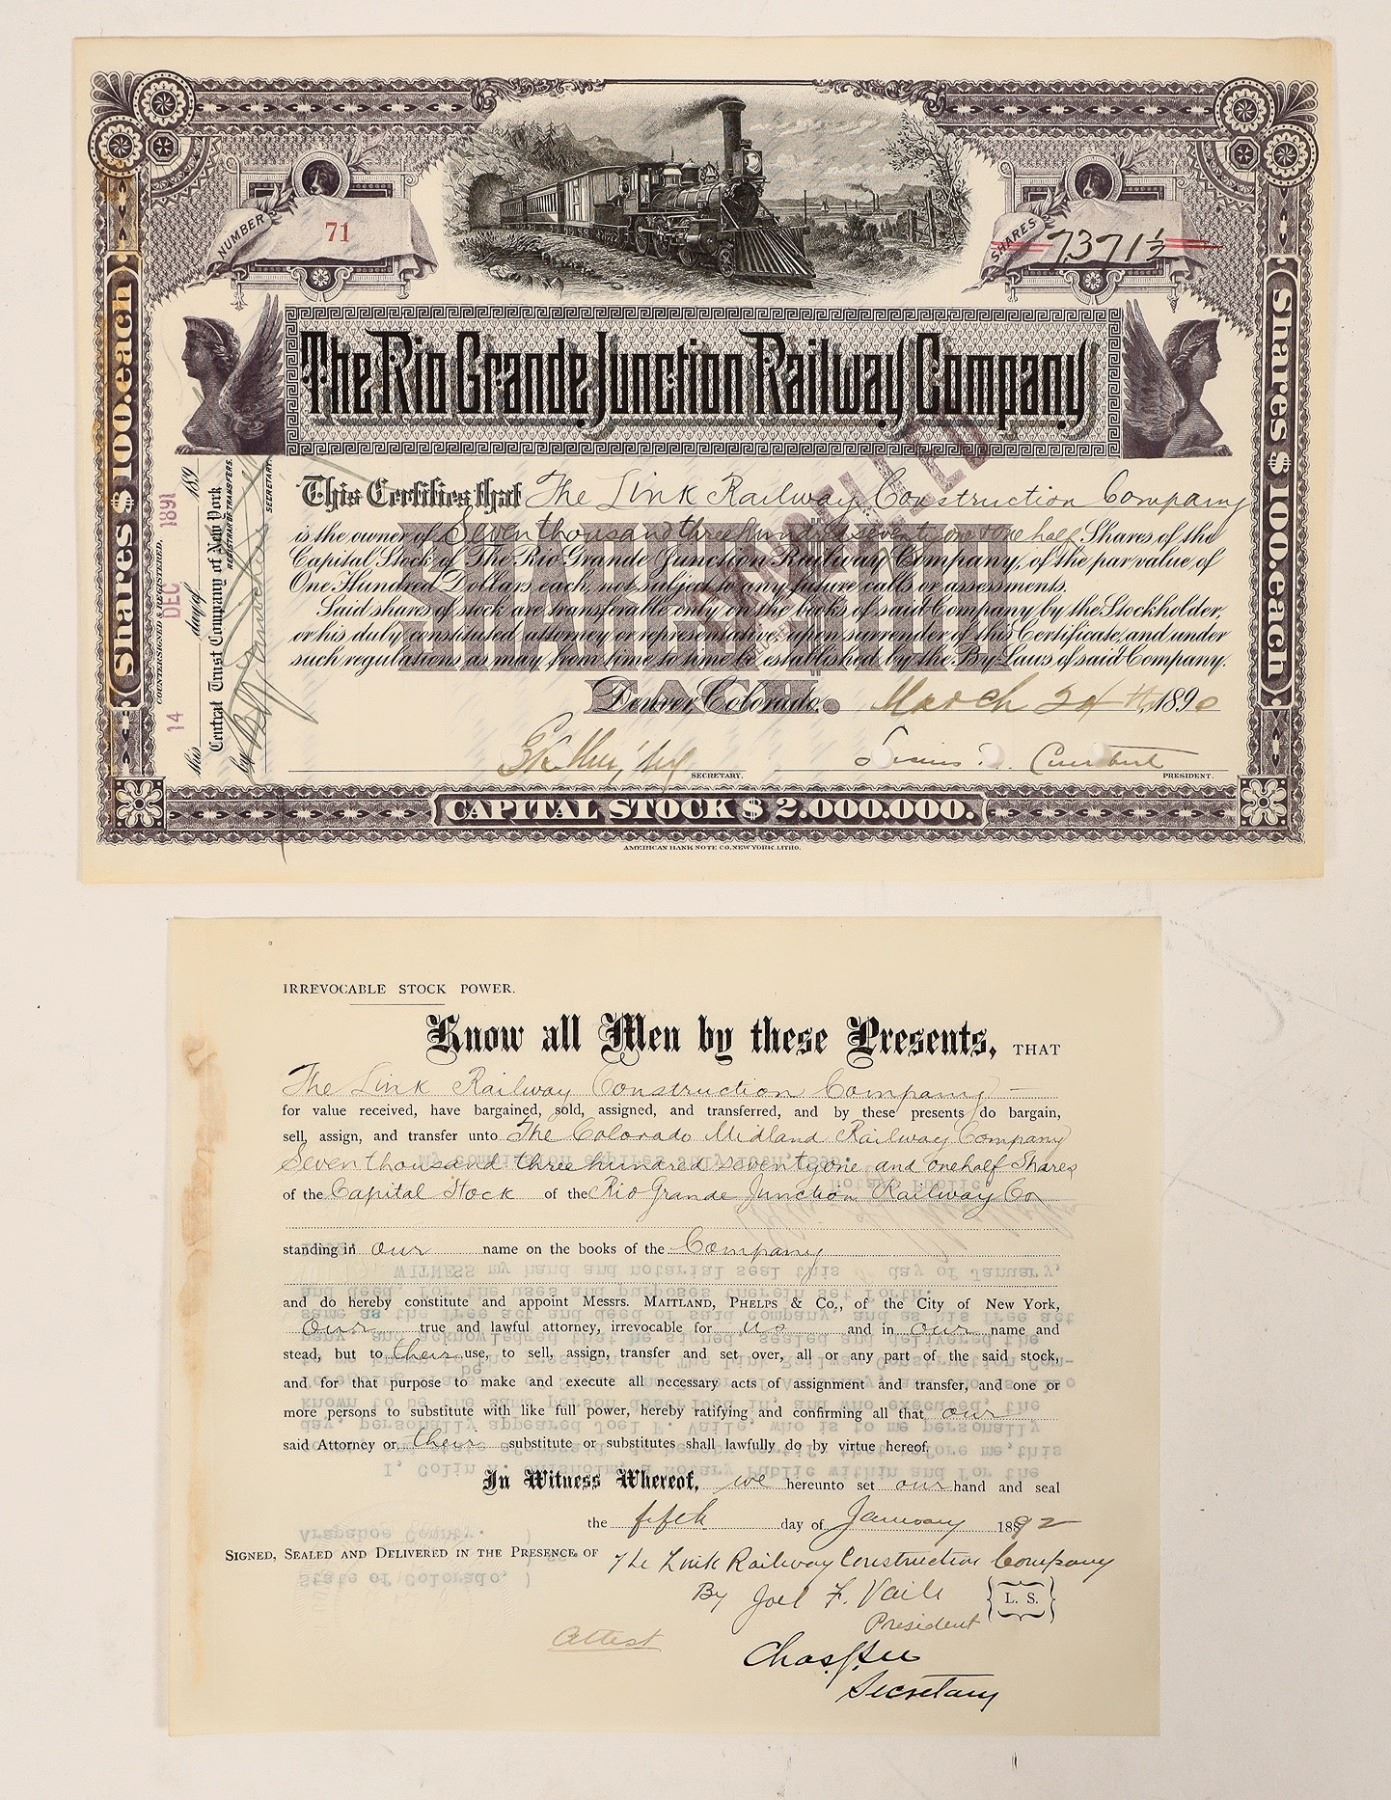 NUMBER
71
SHARES
7371½
The Rio Grande Junction Railway Company
Shares $100. each
Shares $100. each
COUNTERSIGNED & REGISTERED,
this 14 day of DEC 1891 189
Central Trust Company of New York
REGISTRAR OF TRANSFERS.
by
SECRETARY.
CANCELLED
This Certifies that The Link Railway Construction Company
is the owner of Seven thousand three hundred seventy one & one half Shares of the
Capital Stock of The Rio Grande Junction Railway Company, of the par value of
One Hundred Dollars each, not subject to any future calls or assessments.
Said shares of stock are transferable only on the books of said Company by the Stockholder,
or his duly constituted attorney or representative, upon surrender of this Certificate, and under
such regulations as may from time to time be established by the By-Laws of said Company.
EACH.
Denver, Colorado, March 24th, 1890
SECRETARY.
PRESIDENT.
CAPITAL STOCK $ 2.000.000.
AMERICAN BANK NOTE CO. NEW YORK. LITHO.
IRREVOCABLE STOCK POWER.
Know all Men by these Presents, THAT
The Link Railway Construction Company
for value received, have bargained, sold, assigned, and transferred, and by these presents do bargain,
sell, assign, and transfer unto The Colorado Midland Railway Company
Seven thousand three hundred seventy one and one half Shares
of the Capital Stock of the Rio Grande Junction Railway Co
standing in our name on the books of the Company
and do hereby constitute and appoint Messrs. MAITLAND, PHELPS & CO., of the City of New York,
Our true and lawful attorney, irrevocable for us and in our name and
stead, but to their use, to sell, assign, transfer and set over, all or any part of the said stock,
and for that purpose to make and execute all necessary acts of assignment and transfer, and one or
more persons to substitute with like full power, hereby ratifying and confirming all that our
said Attorney or their substitute or substitutes shall lawfully do by virtue hereof.
In Witness Whereof, we hereunto set our hand and seal
the fifth day of January 1892
SIGNED, SEALED AND DELIVERED IN THE PRESENCE OF
The Link Railway Construction Company
By Joel F. Vaile
L. S.
President
Attest
Secretary